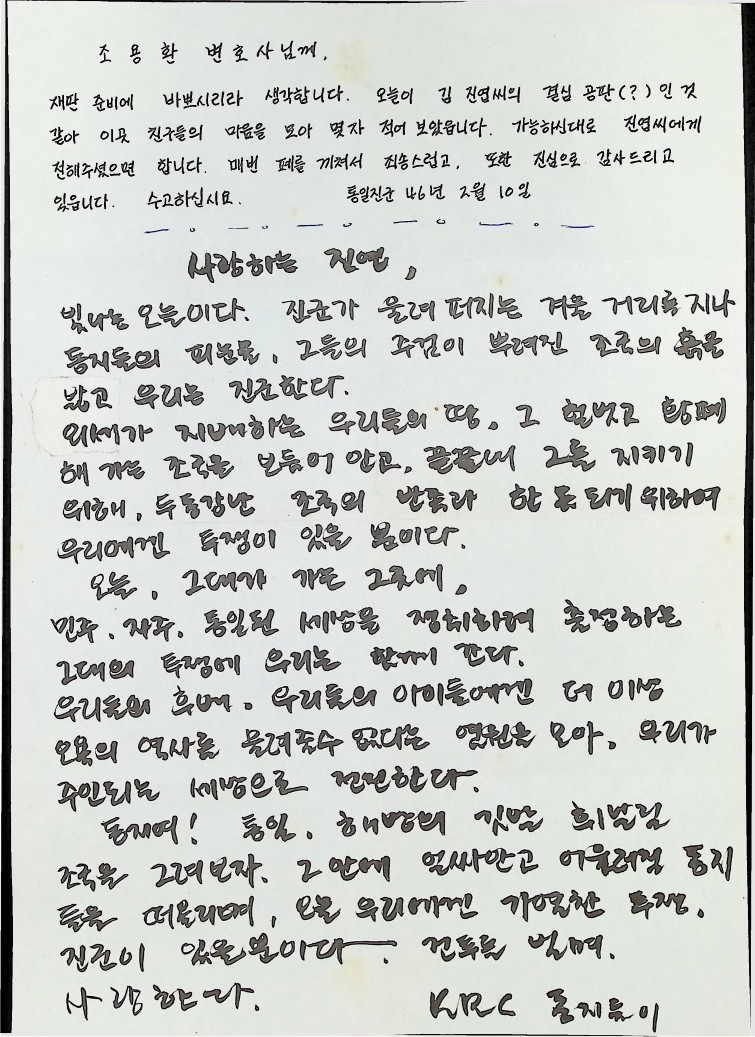 조용환 변호사님께,
재판 준비에 바쁘시리라 생각합니다. 오늘이 김 진엽씨의 결심 공판(?) 인 것
같아 이곳 친구들의 마음을 모아 몇자 적어 보았읍니다. 가능하신대로 진엽씨에게
전해주셨으면 합니다. 매번 폐를 끼쳐서 죄송스럽고, 또한 진심으로 감사드리고
있읍니다. 수고하십시요. 통일진군 46년 2월 10일
사랑하는 진엽,
빛나는 오늘이다. 진군가 울려 퍼지는 겨울 거리를 지나
동지들의 피눈물, 그들의 주검이 뿌려진 조국의 흙을
밟고 우리는 진군한다.
외세가 지배하는 우리들의 땅, 그 헐벗고 황폐
해 가는 조국을 보듬어 안고, 끝끝내 그를 지키기
위해, 두동강난 조국의 반쪽과 한 몸 되기 위하여
우리에겐 투쟁이 있을 뿐이다.
오늘, 그대가 가는 그곳에,
민주, 자주, 통일된 세상을 쟁취하려 출정하는
그대의 투쟁에 우리는 함께 한다.
우리들의 후배, 우리들의 아이들에겐 더 이상
오욕의 역사를 물려줄수 없다는 염원을 모아, 우리가
주인되는 세상으로 전진한다.
동지여! 통일, 해방의 깃발 휘날릴
조국을 그려보자. 그 안에 얼싸안고 어우러질 동지
들을 떠올리며, 오늘 우리에겐 가열찬 투쟁,
진군이 있을뿐이다. 건투를 빌며.
사랑한다. KRC 동지들이